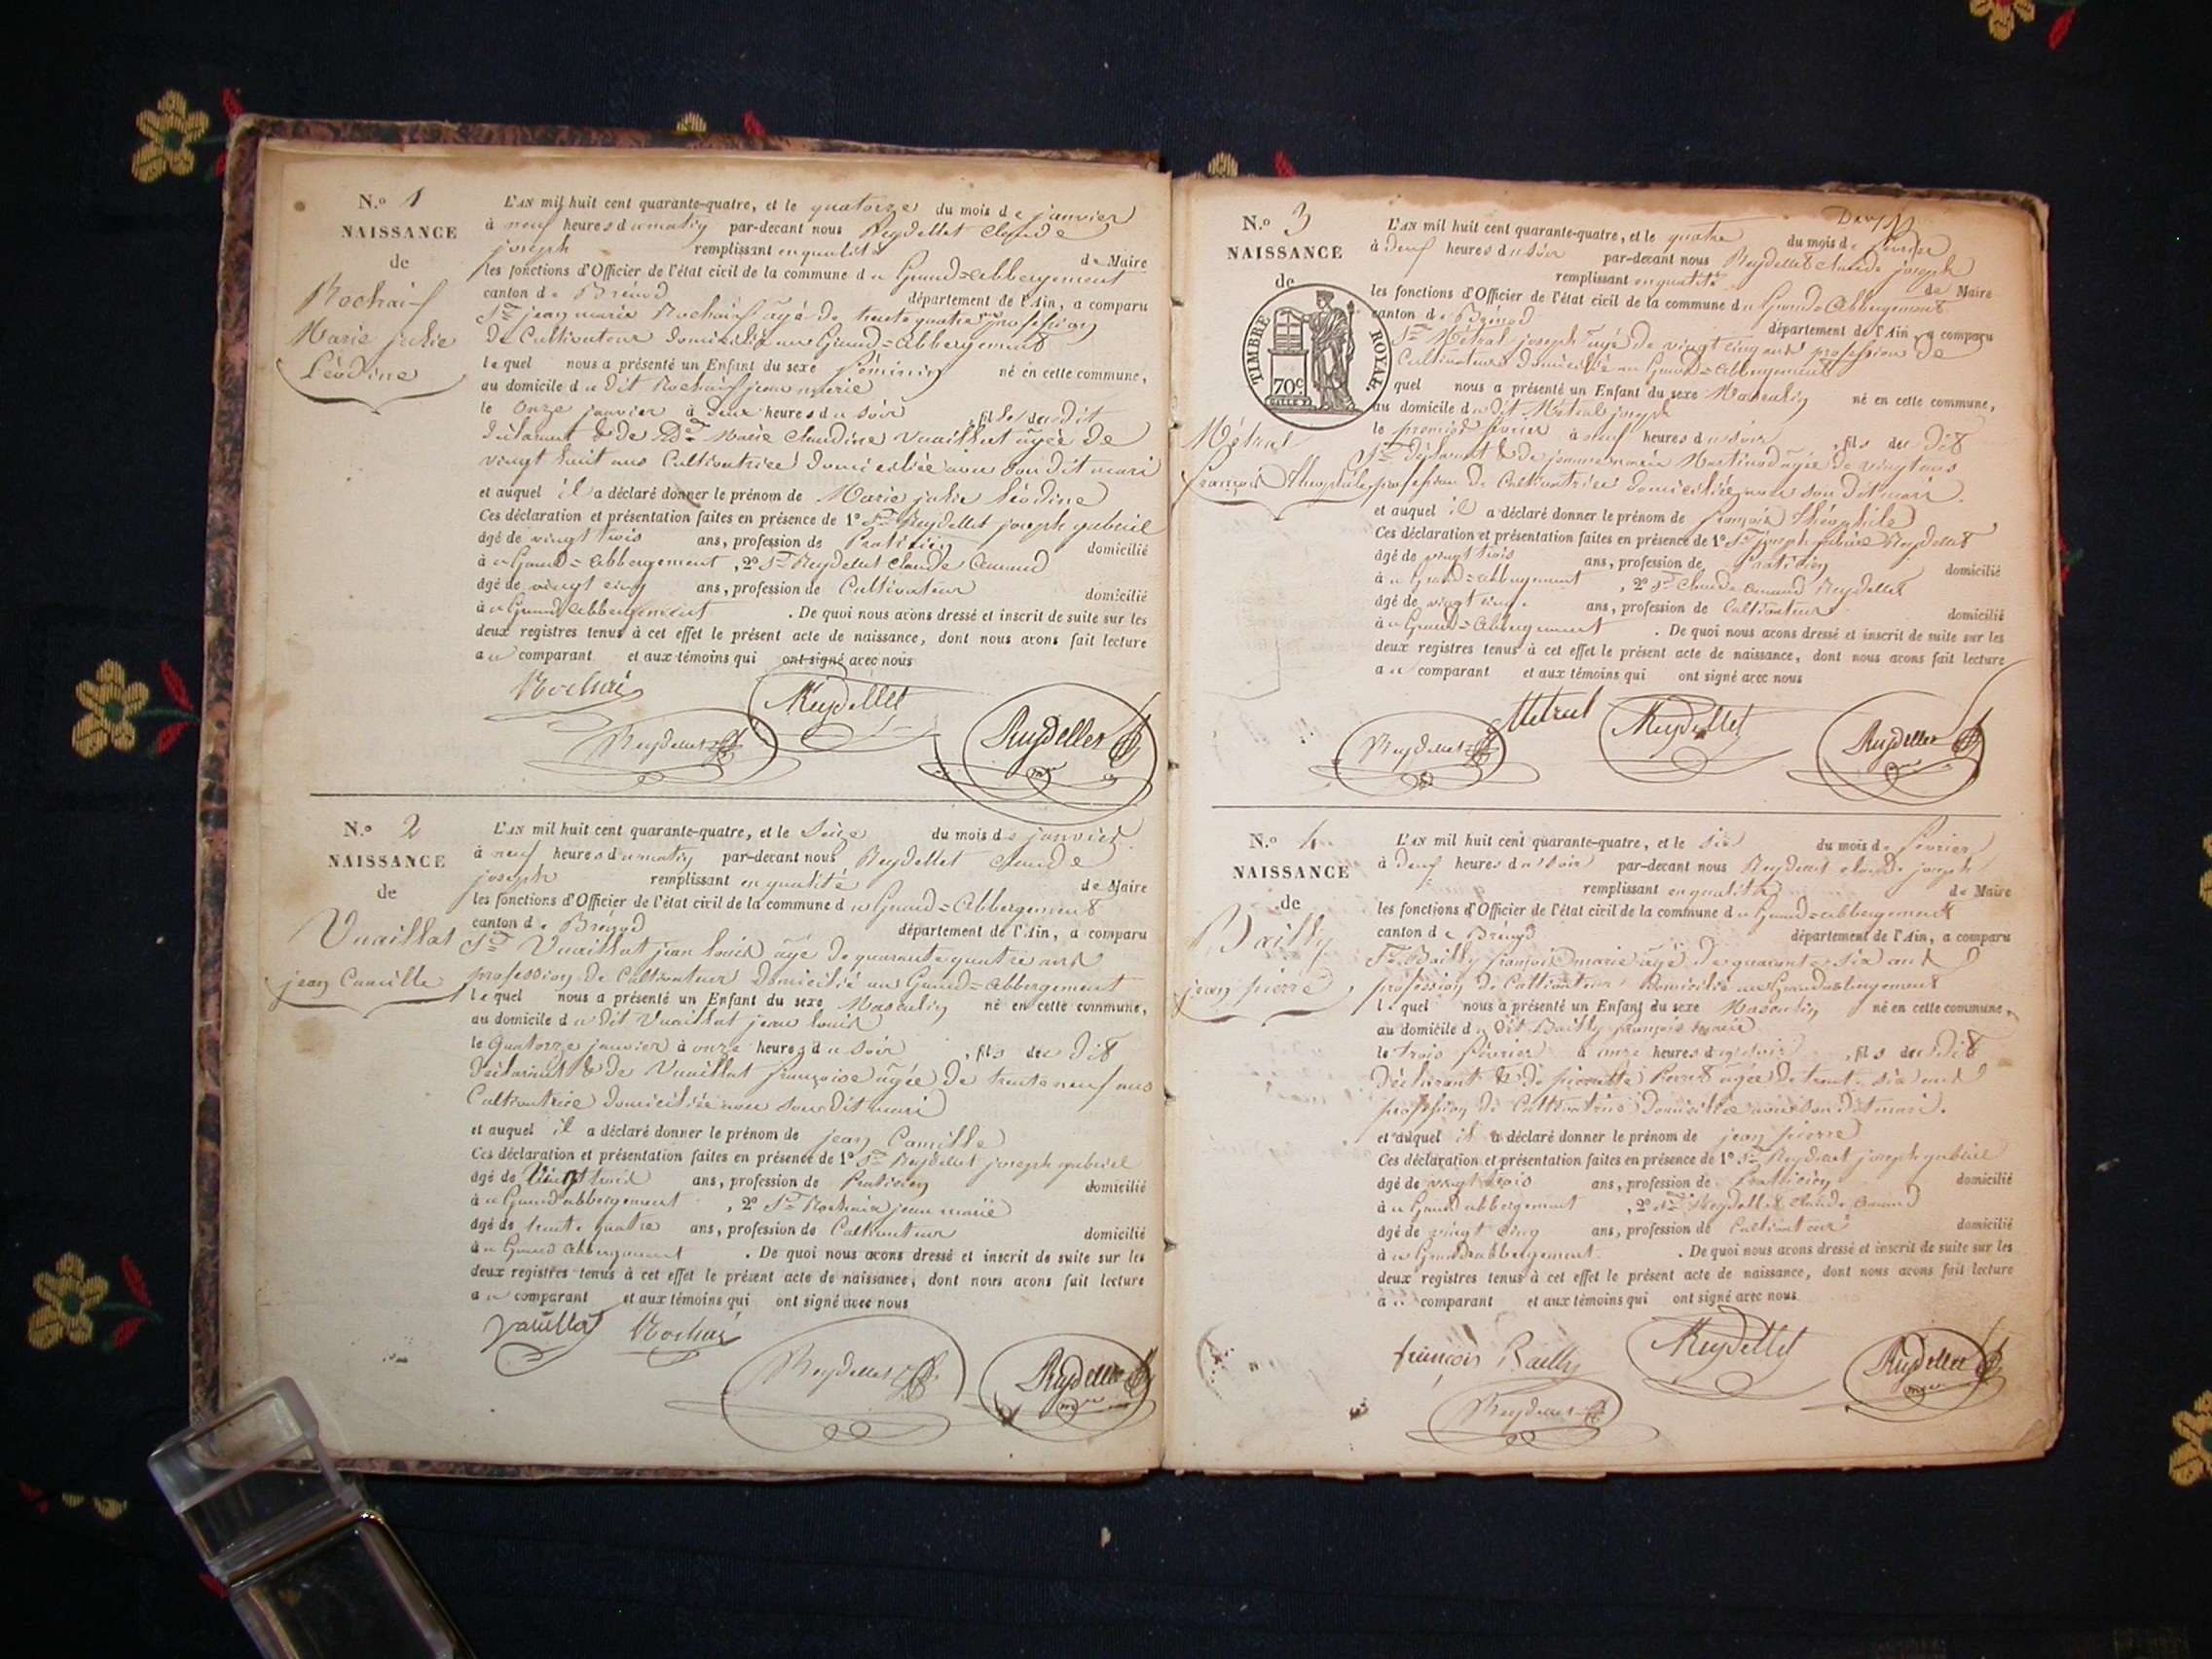 N.o 1
NAISSANCE
de
Rochaix
Marie julie
Léodine
L'AN mil huit cent quarante-quatre, et le quatorze du mois de janvier
à neuf heures du matin par-devant nous Reydellet Claude
joseph remplissant en qualité de Maire
les fonctions d'Officier de l'état civil de la commune du Grand=abbergement
canton de Brénod département de l'Ain, a comparu
Sr jean marie Rochaix agé de trente quatre ans profession
de Cultivateur domicilié au Grand=abbergement
lequel nous a présenté un Enfant du sexe féminin né en cette commune,
au domicile du dit Rochaix jean marie
le Onze janvier à deux heures du soir , fille dudit
déclarant & de De Marie Claudine Vuaillat agée de
vingt huit ans Cultivatrice domiciliée avec son dit mari
et auquel il a déclaré donner le prénom de Marie julie Léodine
Ces déclaration et présentation faites en présence de 1° Sr Reydellet joseph gabriel
âgé de vingt trois ans, profession de Praticien domicilié
à au Grand=abbergement , 2° Sr Reydellet Claude Amand
âgé de vingt cinq ans, profession de Cultivateur domicilié
à au Grand abbergement . De quoi nous avons dressé et inscrit de suite sur les
deux registres tenus à cet effet le présent acte de naissance, dont nous avons fait lecture
au comparant et aux témoins qui ont signé avec nous
Rochaix Reydellet
Reydellet Reydellet
N.o 2
NAISSANCE
de
Vuaillat
jean Camille
L'AN mil huit cent quarante-quatre, et le Seize du mois de janvier
à neuf heures du matin par-devant nous Reydellet Claude
joseph remplissant en qualité de Maire
les fonctions d'Officier de l'état civil de la commune du Grand=abbergement
canton de Brénod département de l'Ain, a comparu
Sr Vuaillat jean louis agé de quarante quatre ans
profession de Cultivateur domicilié au Grand=abbergement
lequel nous a présenté un Enfant du sexe Masculin né en cette commune,
au domicile du dit Vuaillat jean louis
le Quatorze janvier à onze heures du soir , fils du dit
déclarant & de Vuaillat françoise agée de trente neuf ans
Cultivatrice domiciliée avec son dit mari
et auquel il a déclaré donner le prénom de jean Camille
Ces déclaration et présentation faites en présence de 1° Sr Reydellet joseph gabriel
âgé de vingt trois ans, profession de Praticien domicilié
à au Grand abbergement , 2° Sr Rochaix jean marie
âgé de trente quatre ans, profession de Cultivateur domicilié
à au Grand abbergement . De quoi nous avons dressé et inscrit de suite sur les
deux registres tenus à cet effet le présent acte de naissance, dont nous avons fait lecture
au comparant et aux témoins qui ont signé avec nous
Vuaillat Rochaix
Reydellet Reydellet
N.o 3
NAISSANCE
de
TIMBRE ROYAL
70c
Métral
françois théophile
L'AN mil huit cent quarante-quatre, et le quatre du mois de février
à neuf heures du soir par-devant nous Reydellet Claude joseph
remplissant en qualité de Maire
les fonctions d'Officier de l'état civil de la commune du Grand=abbergement
canton de Brénod département de l'Ain, a comparu
Sr Métral joseph agé de vingt cinq ans profession de
Cultivateur domicilié au Grand=abbergement
quel nous a présenté un Enfant du sexe Masculin né en cette commune,
au domicile du dit Métral joseph
le premier février à neuf heures du soir , fils du dit
Sr déclarant & de jeanne marie Martinod agée de vingt ans
profession de Cultivatrice domiciliée avec son dit mari.
et auquel il a déclaré donner le prénom de françois théophile
Ces déclaration et présentation faites en présence de 1° Sr joseph gabriel Reydellet
âgé de vingt trois ans, profession de Praticien domicilié
à au Grand=abbergement , 2° Sr Claude Amand Reydellet
âgé de vingt cinq. ans, profession de Cultivateur domicilié
à au Grand=Abbergement . De quoi nous avons dressé et inscrit de suite sur les
deux registres tenus à cet effet le présent acte de naissance, dont nous avons fait lecture
au comparant et aux témoins qui ont signé avec nous
Metral
Reydellet Reydellet Reydellet
N.o 4
NAISSANCE
de
Bailly
jean pierre
L'AN mil huit cent quarante-quatre, et le six du mois de février
à neuf heures du soir par-devant nous Reydellet claude joseph
remplissant en qualité de Maire
les fonctions d'Officier de l'état civil de la commune du Grand=abbergement
canton de Brénod département de l'Ain, a comparu
Sr Bailly françois marie agé de quarante six ans
profession de Cultivateur domicilié au Grand abbergement
lequel nous a présenté un Enfant du sexe Masculin né en cette commune,
au domicile du dit Bailly françois marie
le trois février à onze heures du soir , fils du dit
déclarant & de pierrette agée de trente six ans
profession de Cultivatrice domiciliée avec son dit mari.
et auquel il a déclaré donner le prénom de jean pierre
Ces déclaration et présentation faites en présence de 1° Sr Reydellet joseph gabriel
âgé de vingt trois ans, profession de Praticien domicilié
à au Grand abbergement , 2° Sr Reydellet Claude Amand
âgé de vingt cinq ans, profession de Cultivateur domicilié
à au Grand abbergement . De quoi nous avons dressé et inscrit de suite sur les
deux registres tenus à cet effet le présent acte de naissance, dont nous avons fait lecture
au comparant et aux témoins qui ont signé avec nous
françois Bailly Reydellet Reydellet
Reydellet